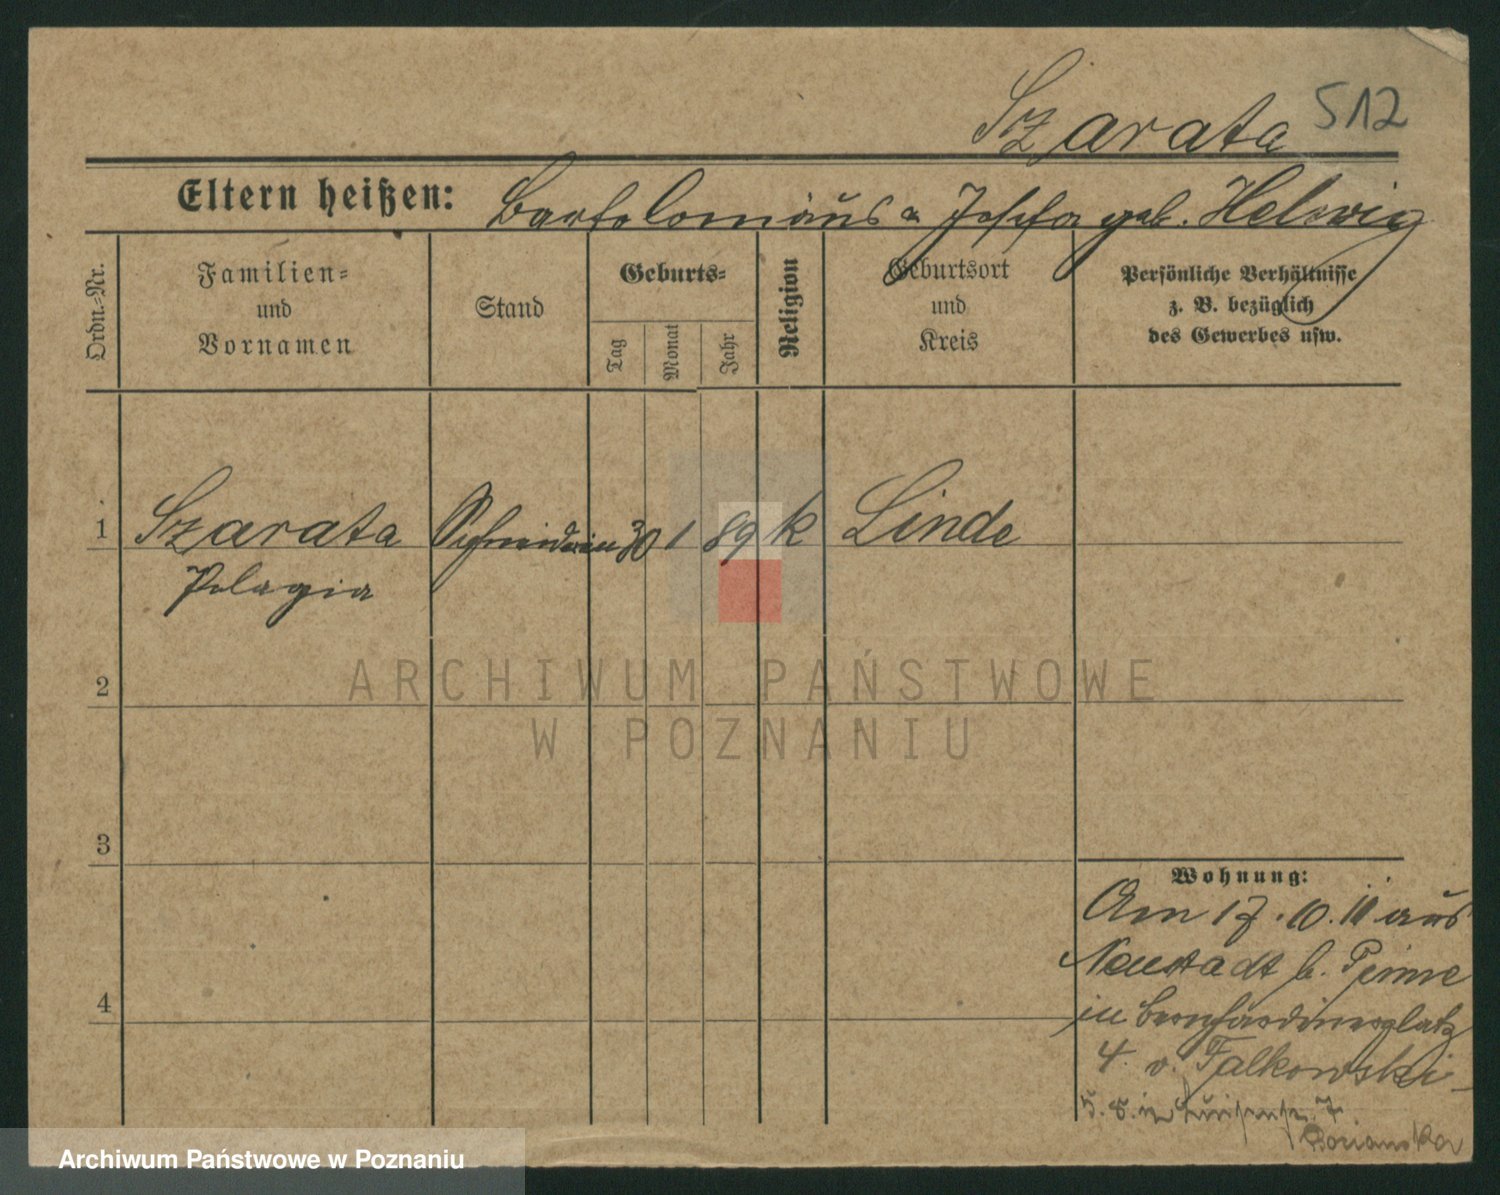 Szarata 512
Eltern heißen: Bartolomäus u Josefa geb. Helwig
Ordn.-Nr.
Familien-
und
Vornamen
Stand
Geburts-
Tag
Monat
Jahr
Religion
Geburtsort
und
Kreis
Persönliche Verhältnisse
z. B. bezüglich
des Gewerbes usw.
1 Szarata Schneiderin 30 1 89 k Linde
Pelagia
ARCHIWUM PAŃSTWOWE
W POZNANIU
2
3
4
Wohnung:
Am 17.10.11 aus
Neustadt b. Pinne
in Bernhardinerplatz
4. v. Falkowski
5. 8. in Luisenstr. 7
Archiwum Państwowe w Poznaniu